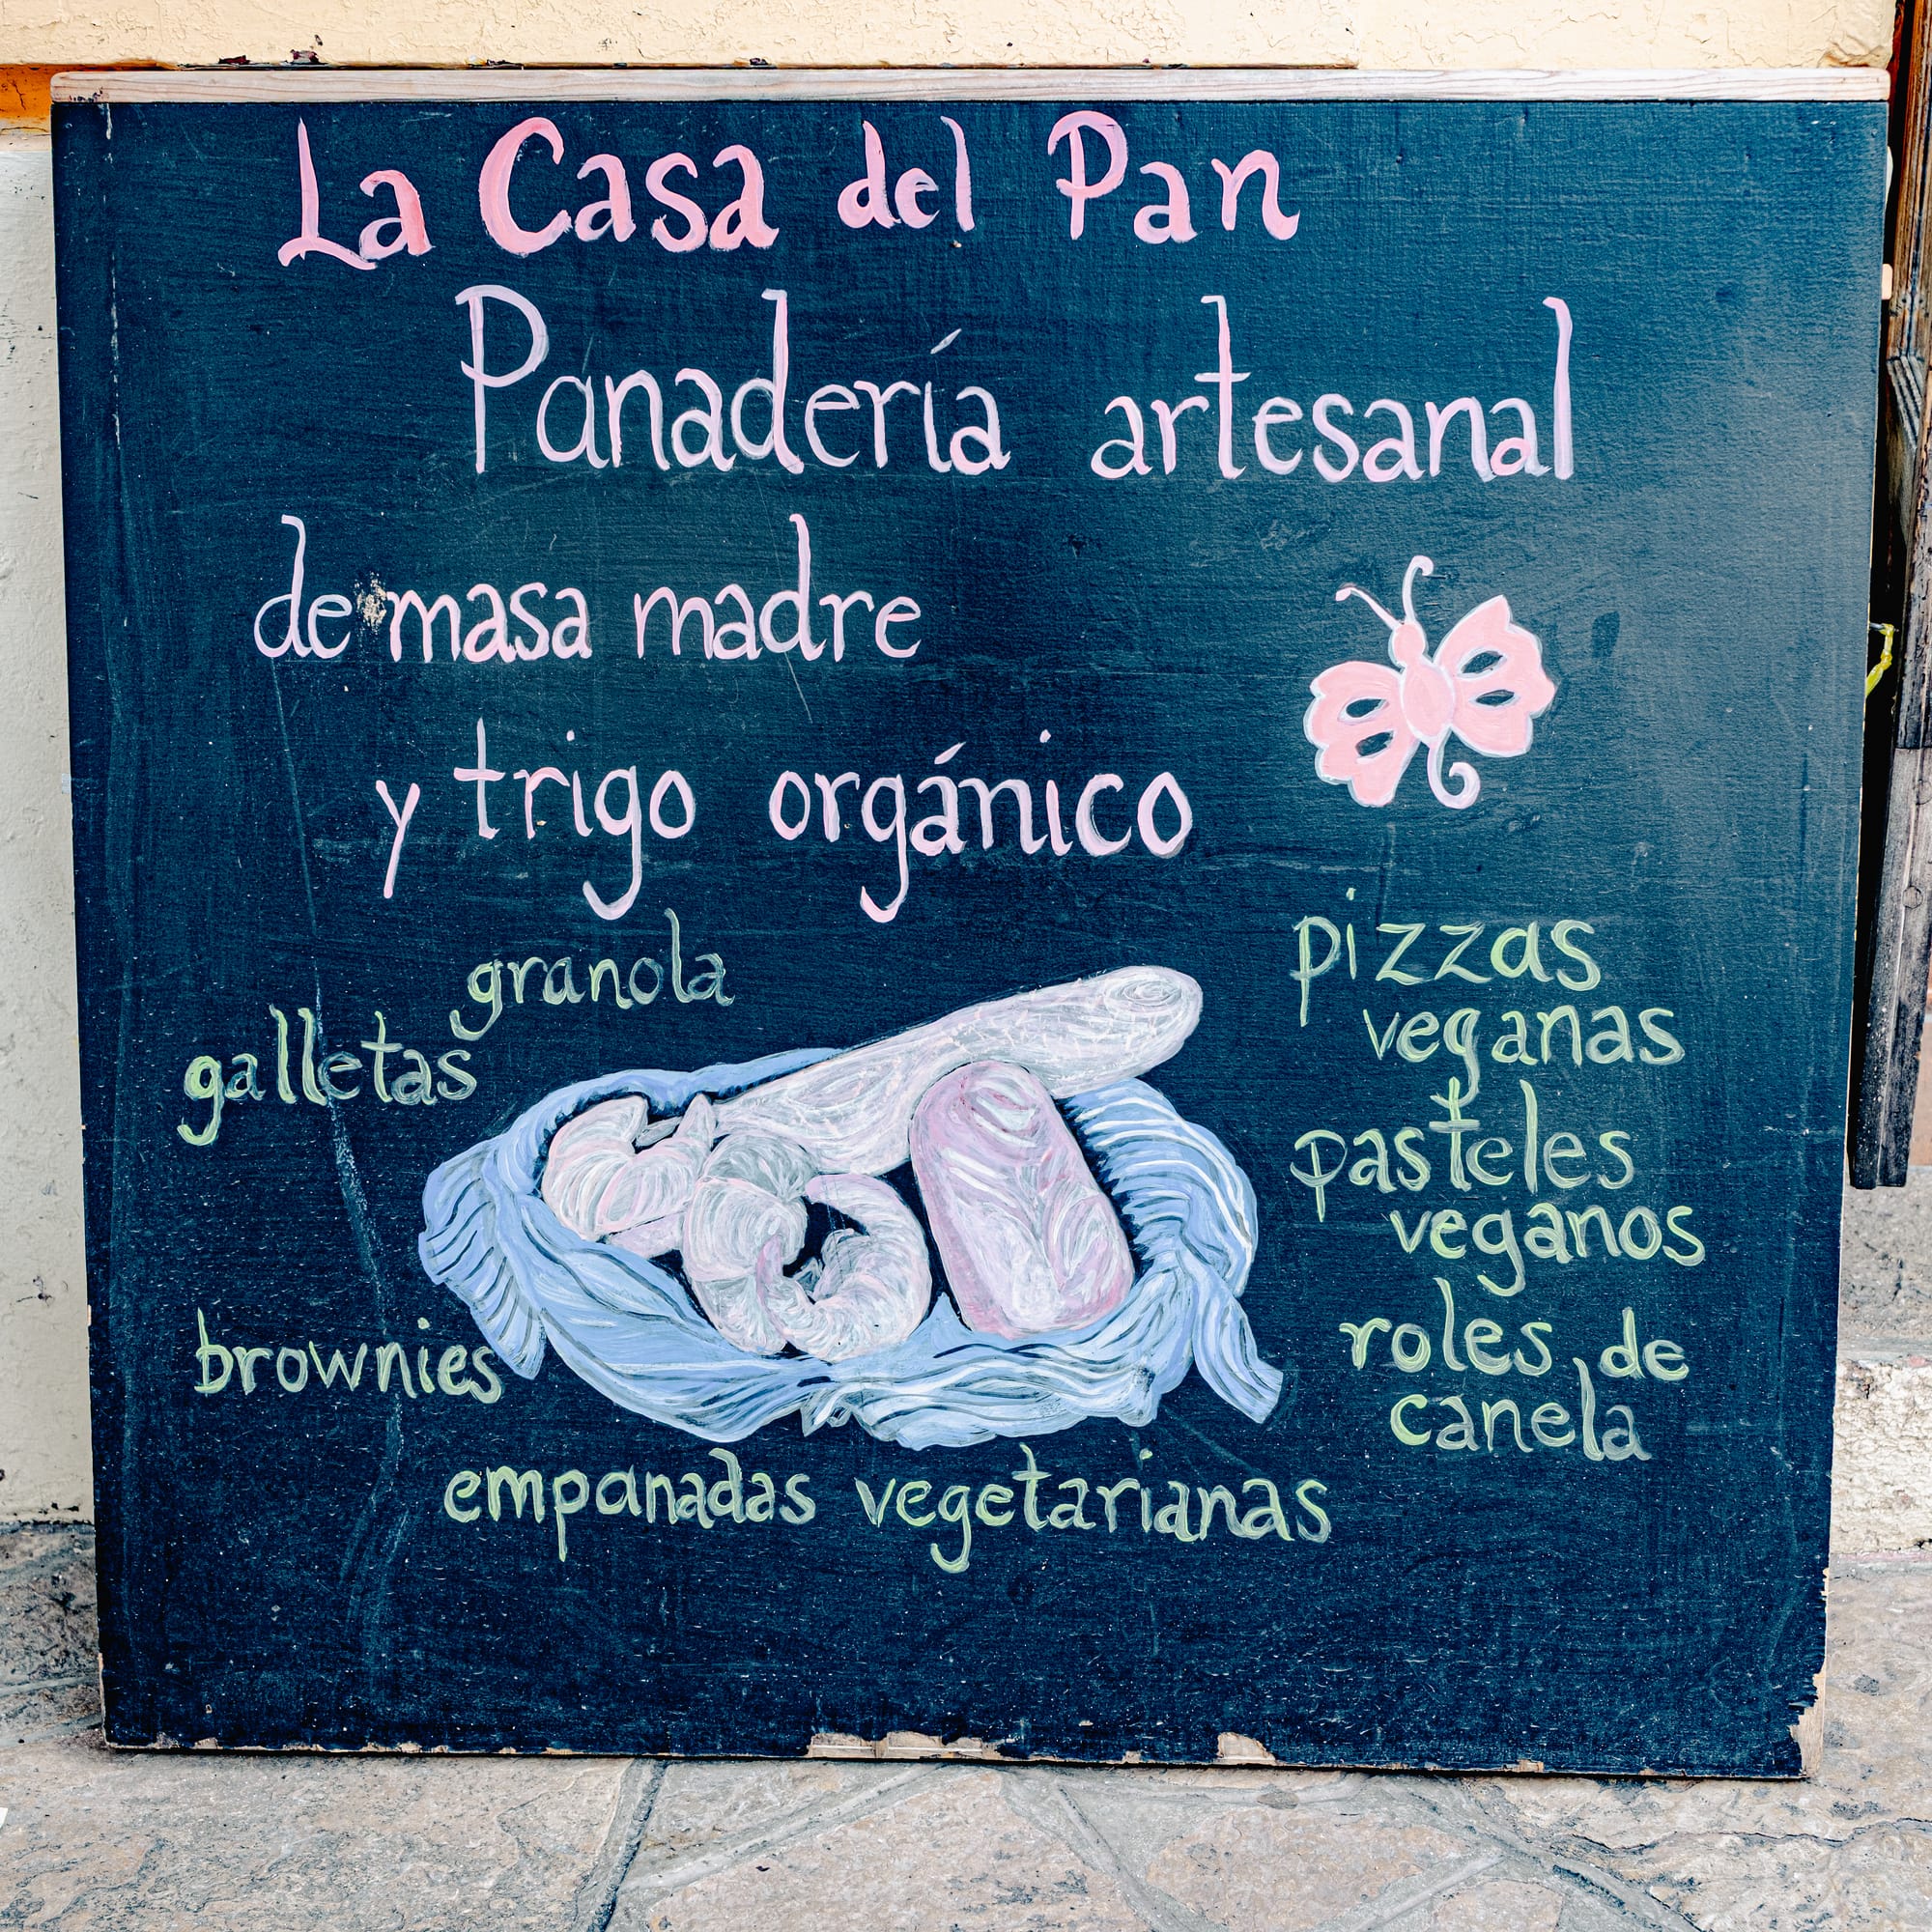 La Casa del Pan
Panadería artesanal
de masa madre
y trigo orgánico
granola
galletas
brownies
empanadas vegetarianas
pizzas
veganas
pasteles
veganos
roles de
canela